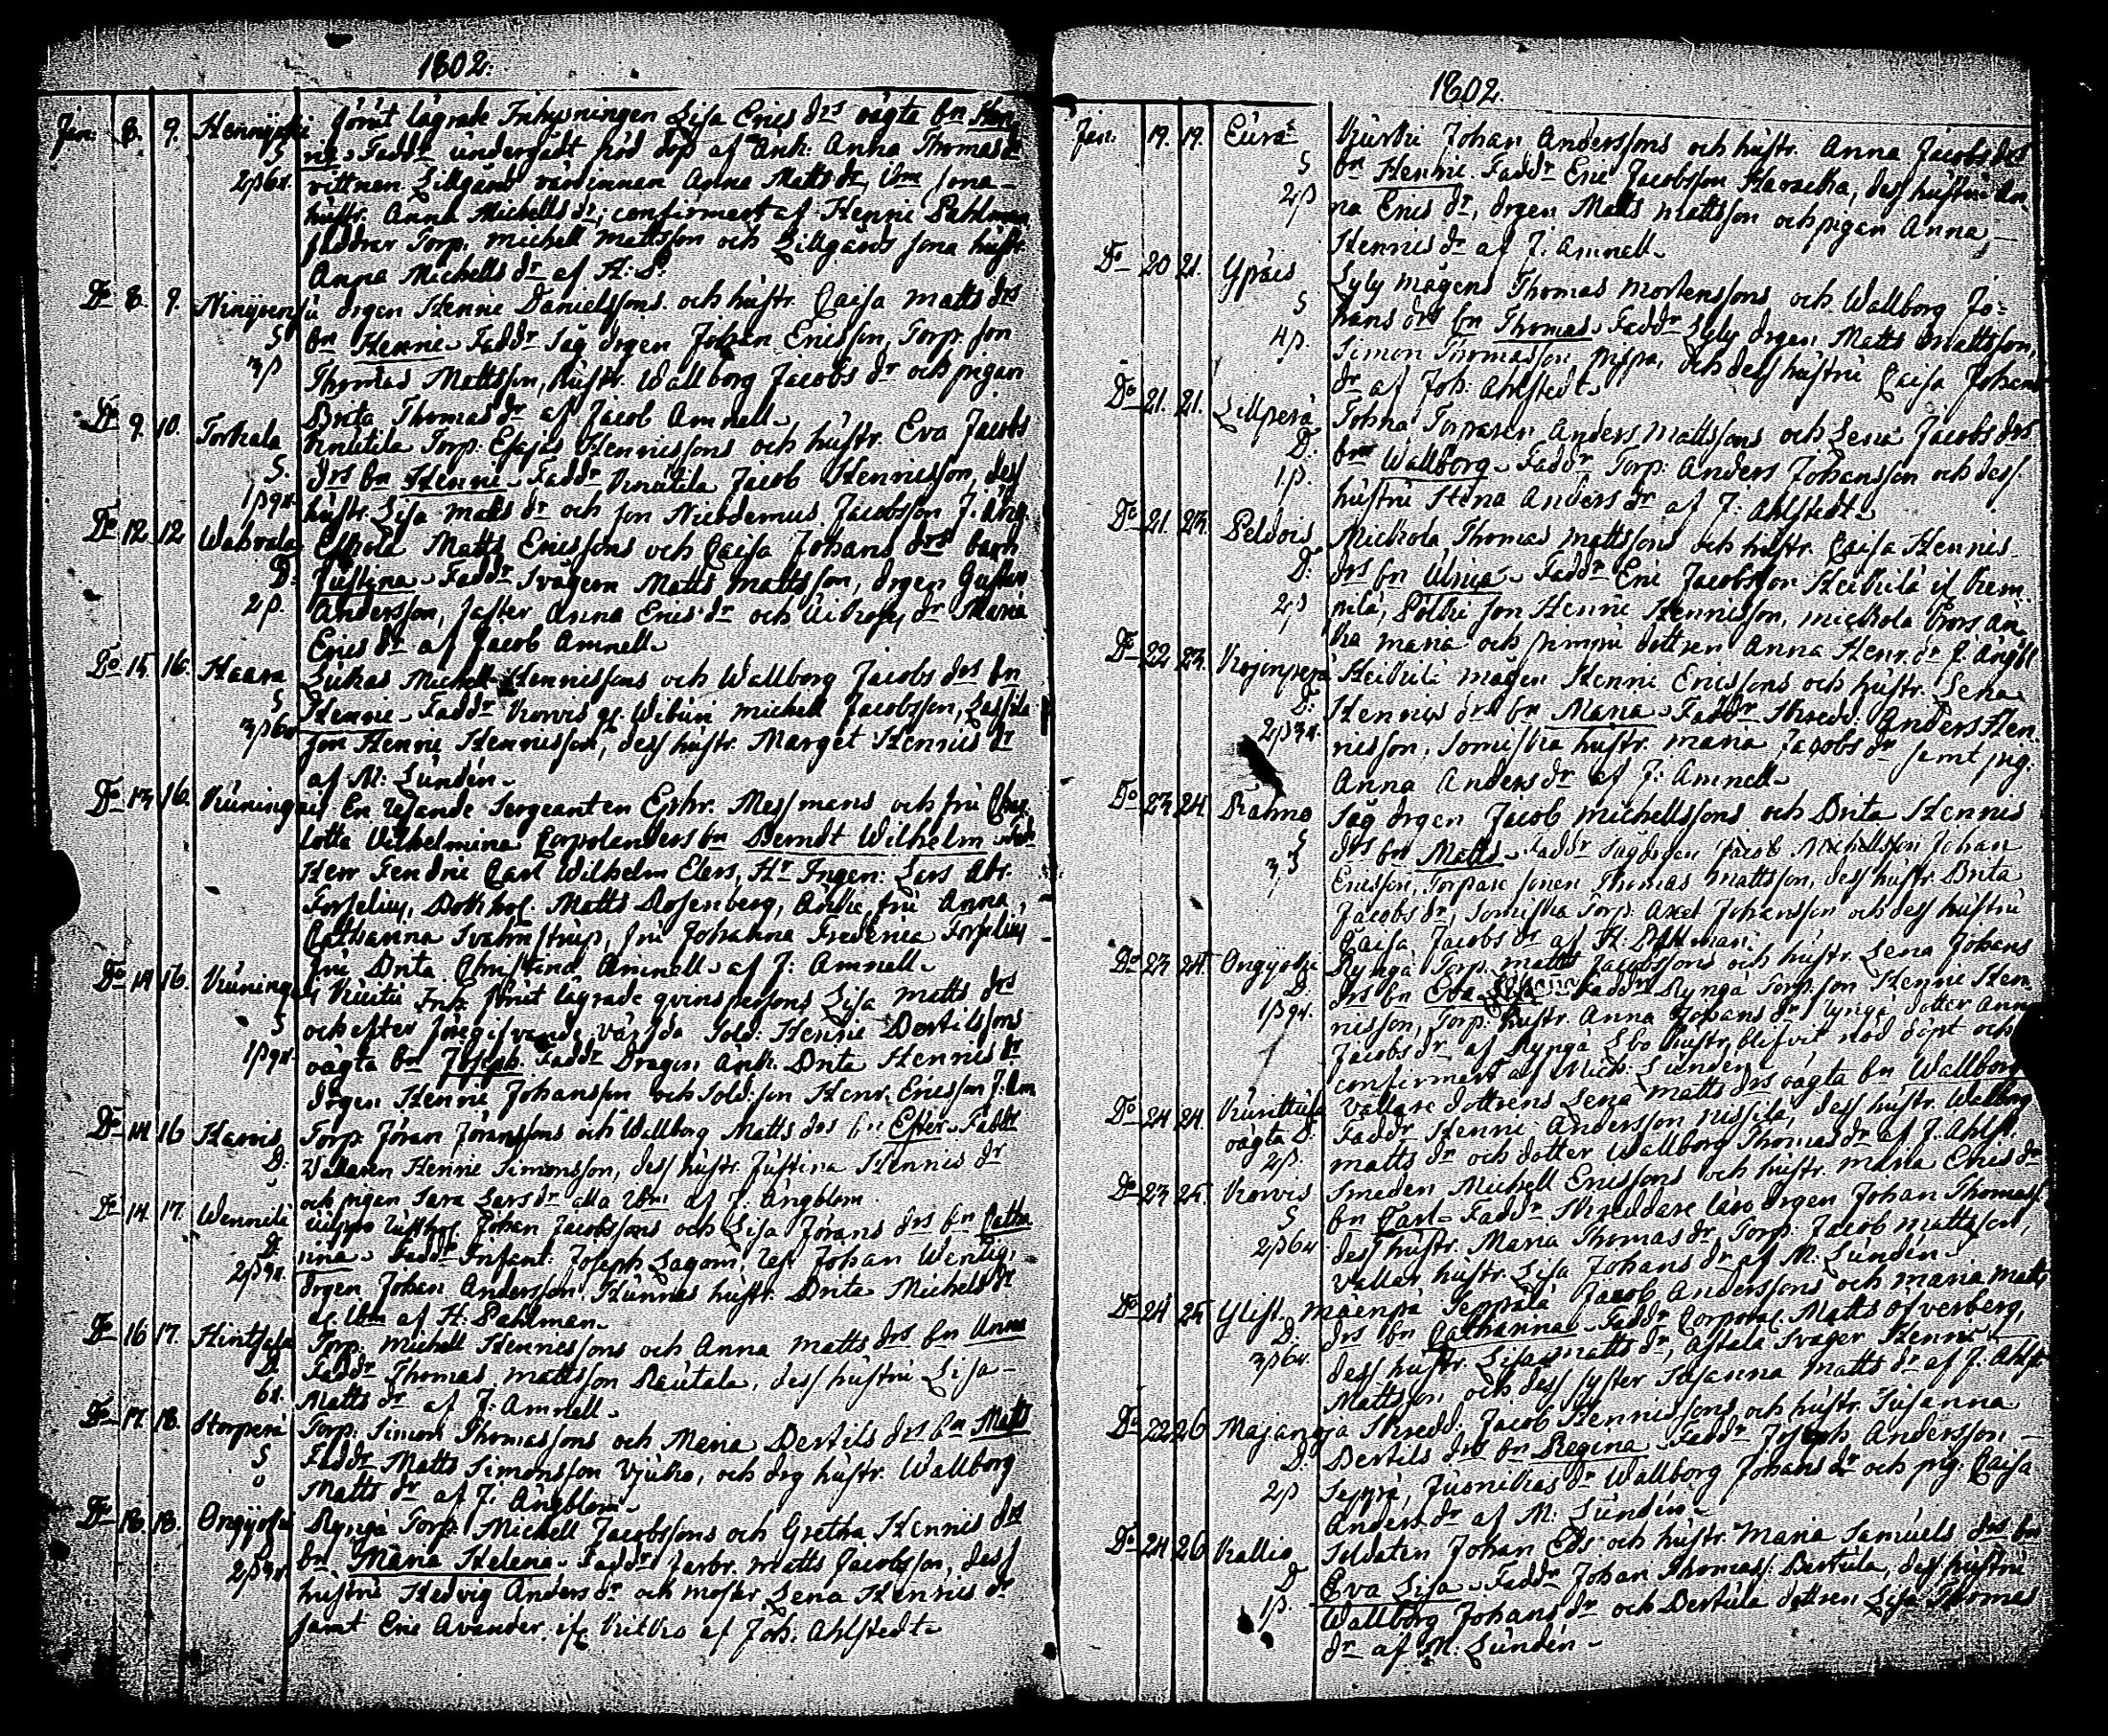 1802.
Jan: 8. 9. Hennijoki förut lägrade Inhysningen Lisa Erics drs oägta bn Hen-
S ric. Faddr undergådt nöd döp af Ank: Anna Thomas dr
2ß6r. vittnen Lillgård värdinnan Anna Matts dr, ibm sona-
hustr. Anna Michells dr; confirmert af Henric Pahlman,
faddrar Torp. Michell Mattsson och Lillgårds sona hustr.
Anna Michells dr af H: P.
Do 8. 9. Ninijoensu drgen Henric Danielssons och hustr. Caisa Matts drs
S bn Henric. Faddr Såg drgen Johan Ericsson, Torp. son
3ß Thomas Mattsson, hustr. Wallborg Jacobs dr och pigan
Brita Thomas dr af Jacob Amnell.
Do 9. 10. Torkala Knutila Torp: Esajas Henricssons och hustr. Eva Jacobs
S. drs bn Henric. Faddr Knutila Jacob Henricsson, dess
1ß9r. hustr. Lisa Matts dr och son Nicodemus Jacobsson J. Äng.
Do 12. 12 Wahvala Eskola Matts Ericssons och Caisa Johans drs barn
D: Justina. Faddr Svågern Matts Mattsson, drgen Gustav
2ß. Andersson, faster Anna Erics dr och dr Maria
Erics dr af Jacob Amnell.
Do 15. 16. Haara Lukas Michell Henricssons och Wallborg Jacobs drs bn
S Henric. Faddr Korvis Michell Jacobsson, Lassila
3ß6r. son Henric Henricsson, dess hustr. Marget Henrics dr
af M: Lundén.
Do 13 16. Kuuningas En resande Sergeanten Ephr. Messmans och fru Char-
lotta Wilhelmina Corpolanders bn Berndt Wilhelm. Fdr
Herr Fendric Carl Wilhelm Elers, Hr Ingen: Lars Abr.
Forselius, Matts Rosenberg, fru Anna
Catharina Svahnström, fru Johanna Frederica Forselius
fru Brita Christina Amnell. af J: Amnell.
Do 14 16. Kuuningas Kuitu Inh. förut lägrade qvinspersons Lisa Matts drs
S och efter föregifvande Sold: Henric Bertilssons
1ß9r. oägta bn Joseph. Faddr Dragon Ank. Brita Henrics dr
drgen Henric Johansson och Sold: son Henr. Ericsson J. Am
Do 14 16 Karvis Torp. Jöran Jöranssons och Wallborg Matts drs bn Ester. Faddr
D: Henric Simonsson, dess hustr. Justina Henrics dr
och pigan Sara Lars dr alla ibm af J. Ängblom.
Do 14. 17. Wennelä Johan Jacobssons och Lisa Jörans drs bn Catha-
D rina. Faddr Infant: Joseph Lagom, Johan
2ß9r. drgen Johan Andersson, Kunnas hustr. Brita Michels dr
af ibm af H. Pahlman.
Do 16 17. Hintzasa Torp. Michell Henricssons och Anna Matts drs bn Anna
D Faddr Thomas Mattsson Rautala, dess hustru Lisa
6r. Matts dr af J: Amnell.
Do 17. 18. Storperä Torp: Simon Thomassons och Maria Bertils drs bn Matts
S Faddr Matts Simonsson och drg hustr. Wallborg
Matts dr af J: Ängblom.
Do 18. 18. Ongijoki Rÿngä Torp: Michell Jacobssons och Gretha Henrics drs
D bn Maria Helena. Faddr farbr. Matts Jacobsson, dess
2ß9r. hustru Hedvig Anders dr och moster Lena Henrics dr
samt Eric Avander af Joh: Ahlstedt.
1802.
Jan: 19. 19. Eura Johan Anderssons och hustr. Anna Jacobs drs
S bn Henric. Faddr Eric Jacobsson, dess hustru An-
2ß na Erics dr, drgen Matts Mattsson och pigan Anna
Henrics dr af J: Amnell.
Do 20 21. Ypäis Lyly mågens Thomas Mortenssons och Wallborg Jo-
S hans drs bn Thomas. Faddr Lyly drgen Matts Mattsson,
4ß. Simon Thomasson, och dess hustru Caisa Johans
dr af Joh: Ahlstedt.
Do 21. 21. Lillperä Torparen Anders Mattssons och Lena Jacobs drs
D: bn Wallborg. Faddr Torp: Anders Johansson och dess
1ß. hustru Stina Anders dr af J: Ahlstedt.
Do 21. 23. Peldois Mickola Thomas Mattssons och hustr. Caisa Henrics
D: drs bn Ulrica. Faddr Eric Jacobsson
2ß son Henric Henricsson, Mickola
Maria och dottren Anna Henr. dr J. Ängbl
Do 22 23. Kojonperä Heikkilä mågen Henric Ericssons och hustr. Lena
D: Henrics drs bn Maria. Faddr Skredd: Anders Hen-
2ß3r. ricsson, hustr. Maria Jacobs dr samt pig:
Anna Anders dr af J: Amnell.
Do 23 24 Rahno Såg drgen Jacob Michellssons och Brita Henrics
S drs bn Matts. Faddr Sågdrgen Jacob Michellsson Johan
3ß Ericsson, Torpare sonen Thomas Mattsson, dess hustr. Brita
Jacobs dr, Torp: Axel Johansson och dess hustru
Caisa Jacobs dr af H. Pahlman.
Do 23 24. Ongijoki Rÿngä Torp. Matts Jacobssons och hustr. Lena Johans
D drs bn Eva. Faddr Rÿngä Torp. son Henric Hen-
1ß9r. ricsson, Torp: hustr. Anna Johans dr, dotter Anna
Jacobs dr af Rÿngä hustr. blifvit nöd döpt och
confirmert af Mich: Lundén.
Do 24 24. Kurittula Vallare dottrens Lena Matts drs oägta bn Wallborg
oägta D: Faddr Henric Andersson, dess hustr. Wallborg
2ß. Matts dr och dotter Wallborg Thomas dr af J. Ahlst.
Do 23 25. Korvis Smeden Michell Ericssons och hustr. Maria Erics dr
S bn Carl. Faddr. Skreddare läro drgen Johan Thomass.
2ß6r. dess hustr. Maria Thomas dr, Torp: Jacob Mattsson,
Vallar hustr. Lisa Johans dr af M. Lundén.
Do 24 25 Ylist. Mäenpä Seppälä Jacob Anderssons och Maria Matts
D: drs bn Catharina. Faddr Corporal Matts Öfverberg,
3ß6r. dess hustr. Lisa Matts dr, Astala Svåger Henric
Mattsson och dess syster Susanna Matts dr af J. Ahlst
Do 22 26 Majanoja Skredd. Jacob Henricssons och hustr. Susanna
D: Bertils drs bn Regina. Faddr Joseph Andersson
2ß Seppä, dr Wallborg Johans dr och pig: Caisa
Anders dr af M. Lundén.
Do 24 26 Kallio Soldaten Johan Eds och hustr. Maria Samuels drs bn
D Eva Lisa. Faddr Johan Thomass. Bertula, dess hustru
1ß. Wallborg Johans dr och Bertula dottren Lisa Thomas
dr af M. Lundén.